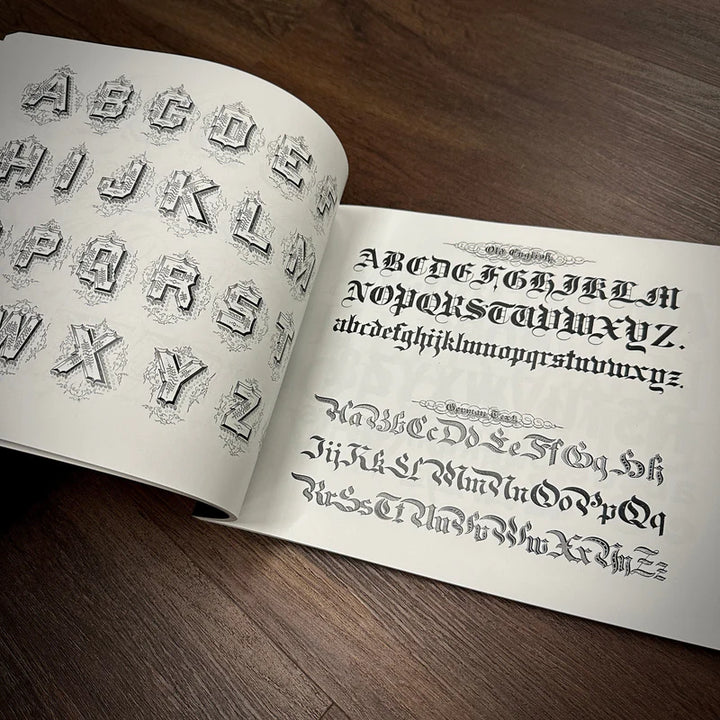 A B C D E F
H I J K L M
P Q R S T
W X Y Z
Old English
ABCDEFGHIJKLM
NOPQRSTUVWXYZ.
abcdefghijklmnopqrstuvwxyz.
German Text
AaBbCcDdEeFfGgHh
IijKkLlMmNnOoPpQq
RrSsTtUuVvWwXxYyZz